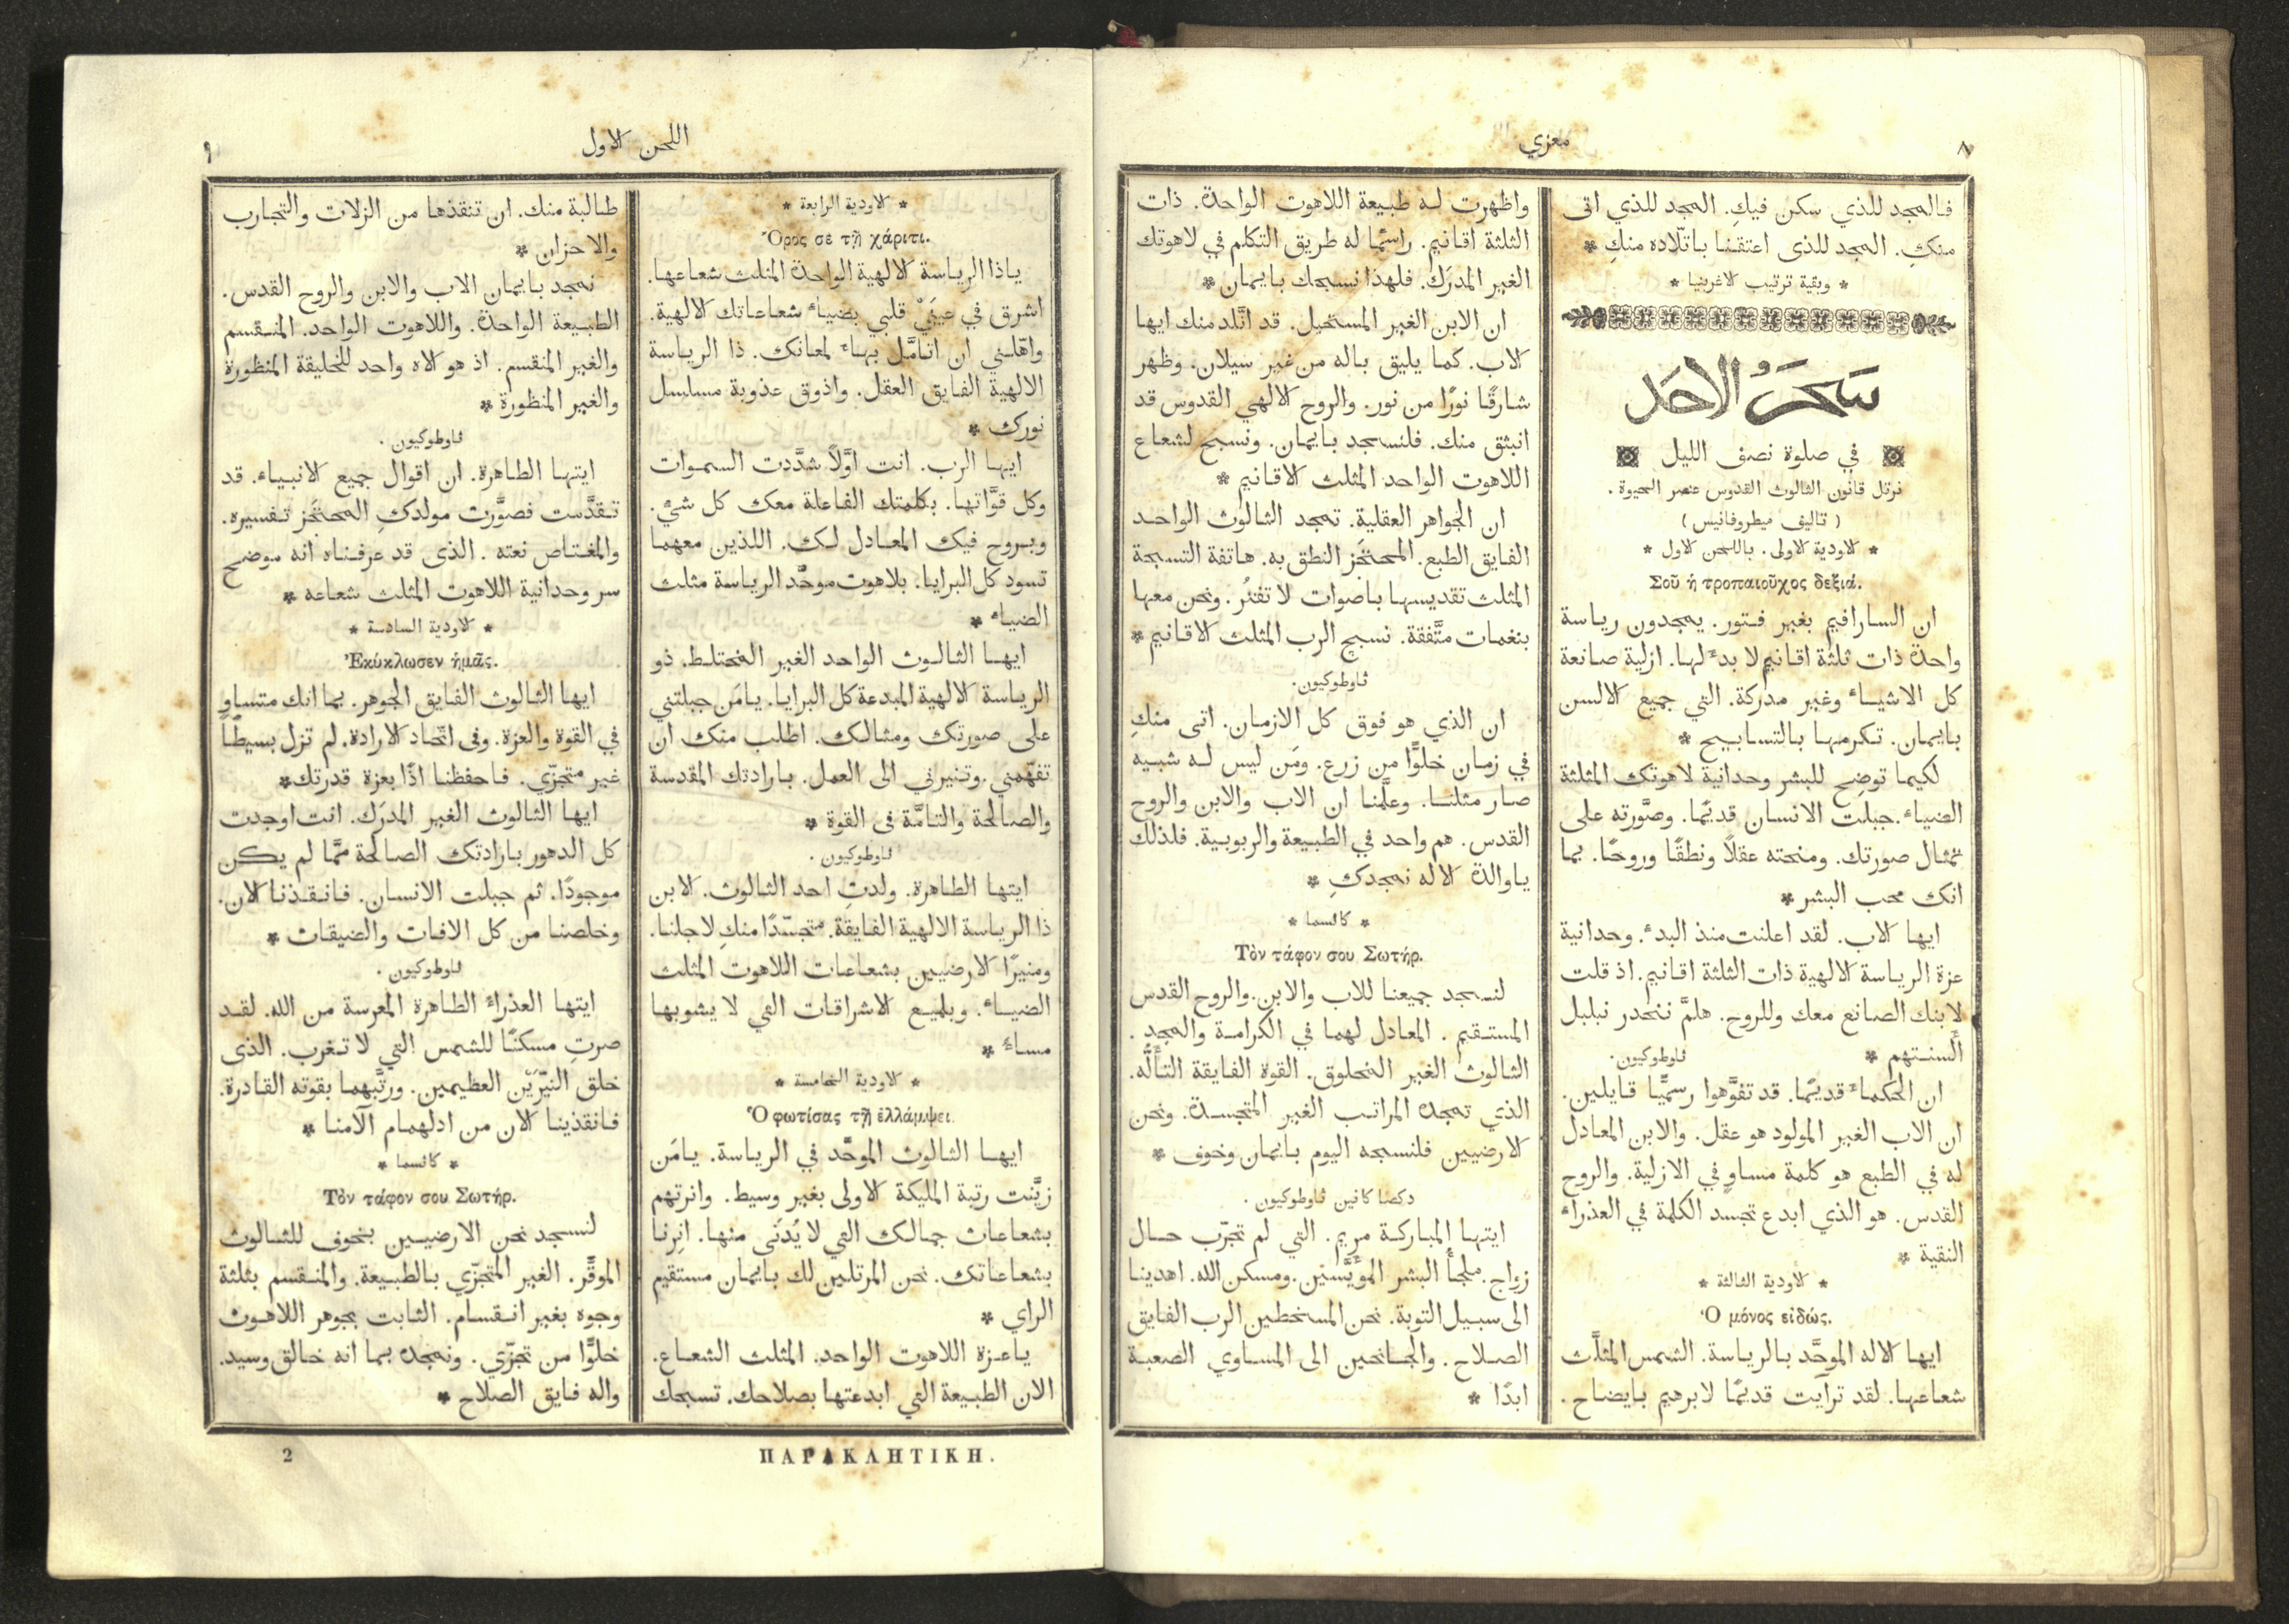 ٨
معزي
فالمجد للذي سكن فيكِ. المجد للذي اتى
منكِ. المجد للذى اعتقنا باتّلاده منكِ *
* وبقية ترتيب الاغربنيا *
سَحَرُ الاحَد
في صلوة نصف الليل
نرتل قانون الثالوث القدوس عنصر الحيوة .
( تاليف ميطروفانيس )
* الاودية الاولى. باللحن الاول *
Σοῦ ἡ τροπαιοῦχος δεξιά.
ان السارافيم بغير فتور. يمجدون رياسة
واحدة ذات ثلثة اقانيم لا بدءَ لها. ازلية صانعة
كل الاشياءِ وغير مدركة. التي جميع الالسن
بايمان. تكرمها بالتسابيح *
لكيما توضِح للبشر وحدانية لاهوتك المثلثة
الضياءِ. جبلت الانسان قديمًا. وصوَّرته على
تمثال صورتك. ومنحته عقلاً ونطقًا وروحًا. بما
انك محب البشر *
ايها الاب. لقد اعلنت منذ البدءِ. وحدانية
عزة الرياسة الالهية ذات الثلثة اقانيم. اذ قلت
لابنك الصانع معك وللروح. هلمَّ ننحدر نبلبل
أَلسنتهم *
ثاوطوكيون.
ان الحكماءَ قديمًا. قد تفوَّهوا رسميًّا قايلين.
ان الاب الغير المولود هو عقل. والابن المعادل
له في الطبع هو كلمة مساوٍ في الازلية. والروح
القدس. هو الذي ابدع تجسد الكلمة في العذراءِ
النقية *
* الاودية الثالثة *
Ὁ μόνος εἰδώς.
ايها الاله الموحَّد بالرياسة. الشمس المثلَّث
شعاعها. لقد ترآيت قديمًا لابرهيم بايضاح.
واظهرت له طبيعة اللاهوت الواحدة. ذات
الثلثة اقانيم. راسمًا له طريق التكلم في لاهوتك
الغير المدرَك. فلهذا نسبحك بايمان *
ان الابن الغير المستحيل. قد اتَّلد منك ايها
الاب. كما يليق باله من غير سيلان. وظهر
شارقًا نورًا من نور. والروح الالهي القدوس قد
انبثق منك. فلنسجد بايمان. ونسبح لشعاع
اللاهوت الواحد المثلث الاقانيم *
ان الجواهر العقلية. تمجد الثالوث الواحد
الفايق الطبع. المحتجَز النطق به. هاتفة التسبحة
المثلث تقديسها باصوات لا تفتُر. ونحن معها
بنغمات متَّفقة. نسبح الرب المثلث الاقانيم *
ثاوطوكيون.
ان الذي هو فوق كل الازمان. اتى منكِ
في زمان خلوًّا من زرع. ومَن ليس له شبيه
صار مثلنا. وعلَّمنا ان الاب والابن والروح
القدس. هم واحد في الطبيعة والربوبية. فلذلك
ياوالدة الاله نمجدكِ *
* كاثسما *
Τὸν τάφον σου Σωτήρ.
لنسجد جميعنا للاب والابن. والروح القدس
المستقيم . المعادل لهما في الكرامة والمجد .
الثالوث الغير المخلوق. القوة الفايقة التأَلُّه.
الذي تمجده المراتب الغير المتجسدة. ونحن
الارضيين فلنسبحه اليوم بايمان وخوف *
دكصا كانين ثاوطوكيون .
ايتها المباركة مريم. التي لم تجرّب حال
زواج. ملجأَ البشر المؤَيَّسين. ومسكن الله. اهدينا
الى سبيل التوبة. نحن المسخطين الرب الفايق
الصلاح. والجانحين الى المساوي الصعبة
ابدًا *
اللحن الاول
٩
* الاودية الرابعة *
Ὄρος σὲ τῇ χάριτι.
ياذا الرياسة الالهية الواحدة المثلث شعاعها.
اشرق في عينَيْ قلبي بضياءِ شعاعاتك الالهية.
واهّلني ان اتامَّل بهاءَ لمعانك. ذا الرياسة
الالهية الفايق العقل. واذوق عذوبة مسلسل
نورك *
ايها الرب. انت اوَّلاً شدَّدت السموات
وكل قوَّاتها. بكلمتك الفاعلة معك كل شي.
وبروح فيك المعادل لك. اللذين معهما
تسود كل البرايا. بلاهوت موحَّد الرياسة مثلث
الضياءِ *
ايها الثالوث الواحد الغير المختلط. ذو
الرياسة الالهية المبدعة كل البرايا. يامَن جبلتني
على صورتك ومثالك. اطلب منك ان
تفهّمني . وتنيرني الى العمل. بارادتك المقدسة
والصالحة والتامَّة فى القوة *
ثاوطوكيون .
ايتها الطاهرة. ولدتِ احد الثالوث. الابن
ذا الرياسة الالهية الفايقة. متجسّدًا منكِ لاجلنا.
ومنيرًا الارضيين بشعاعات اللاهوت المثلث
الضياءِ. وبلميع الاشراقات التي لا يشوبها
مساءٌ *
* الاودية الخامسة *
Ὁ φωτίσας τῇ ἐλλάμψει.
ايها الثالوث الموحَّد في الرياسة. يامَن
زيَّنت رتبة المليكة الاولى بغير وسيط. وانرتهم
بشعاعات جمالك التي لا يُدنَى منها. انِرنا
بشعاعاتك. نحن المرتلين لك بايمان مستقيم
الراي *
ياعزة اللاهوت الواحد. المثلث الشعاع.
الان الطبيعة التي ابدعتها بصلاحك. تسبحك
طالبة منك. ان تنقذها من الزلات والتجارب
والاحزان *
نمجد بايمان الاب والابن والروح القدس.
الطبيعة الواحدة. واللاهوت الواحد. المنقسم
والغير المنقسم. اذ هو الاه واحد للخليقة المنظورة
والغير المنظورة *
ثاوطوكيون .
ايتها الطاهرة. ان اقوال جميع الانبياءِ. قد
تقدَّست فصوَّرت مولدكِ المحتجَز تفسيره.
والمغتاص نعته . الذى قد عرفناه انه موضح
سر وحدانية اللاهوت المثلث شعاعه *
* الاودية السادسة *
Ἐκύκλωσεν ἡμᾶς.
ايها الثالوث الفايق الجوهر. بما انك متساوٍ
في القوة والعزة. وفى اتّحاد الارادة. لم تزل بسيطًا
غير متجزّي. فاحفظنا اذًا بعزة قدرتك *
ايها الثالوث الغير المدرَك. انت اوجدت
كل الدهور بارادتك الصالحة ممَّا لم يكن
موجودًا. ثم جبلت الانسان. فانقذنا الان.
وخلصنا من كل الافات والضيقات *
ثاوطوكيون .
ايتها العذراءُ الطاهرة المعرسة من الله. لقد
صرتِ مسكنًا للشمس التي لا تغرب. الذى
خلق النيّرَيْن العظيمين. ورتَّبهما بقوته القادرة.
فانقذينا الان من ادلهمام الآمنا *
* كاثسما *
Τὸν τάφον σου Σωτήρ.
لنسجد نحن الارضيين بخوف للثالوث
الموقَّر. الغير المتجزّي بالطبيعة. والمنقسم بثلثة
وجوه بغير انقسام. الثابت بجوهر اللاهوت
خلوًّا من تجزّي. ونمجده بما انه خالق وسيد.
واله فايق الصلاح *
ΠΑΡΑΚΛΗΤΙΚΗ.
2